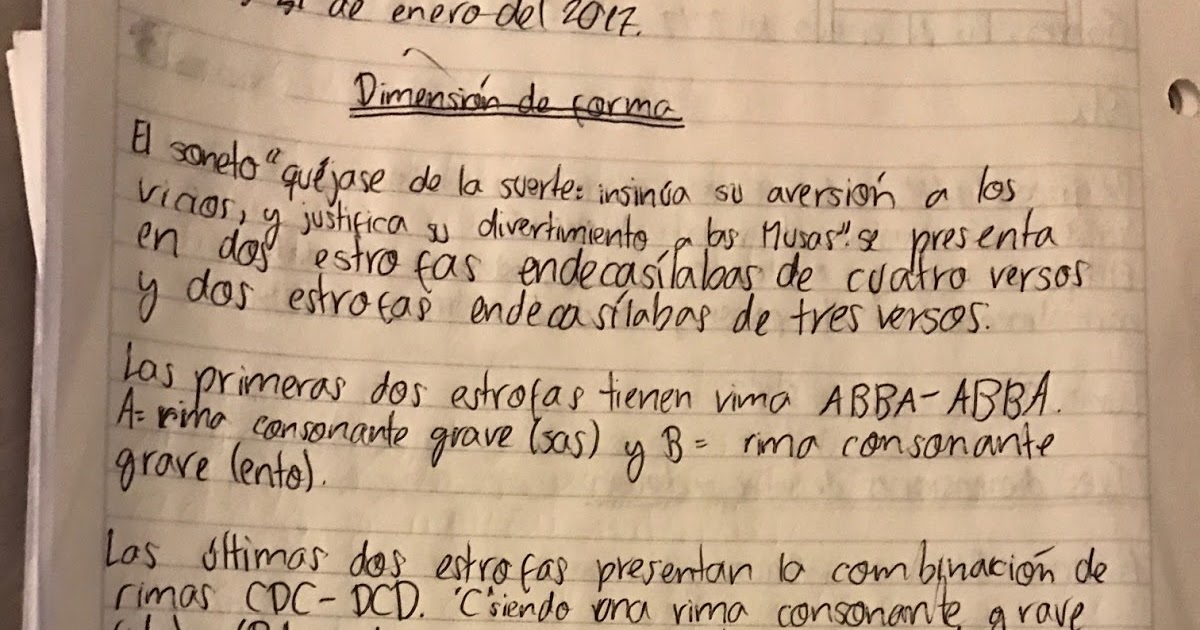 de enero del 2017.
Dimensión de forma
El soneto "quéjase de la suerte: insinúa su aversión a los
vicios, y justifica su divertimiento a las Musas". se presenta
en dos estrofas endecasílabas de cuatro versos
y dos estrofas endecasílabas de tres versos.
Las primeras dos estrofas tienen rima ABBA-ABBA.
A= rima consonante grave (sas) y B= rima consonante
grave (ento).
Las últimas dos estrofas presentan la combinación de
rimas CDC-DCD. "C" siendo una rima consonante grave